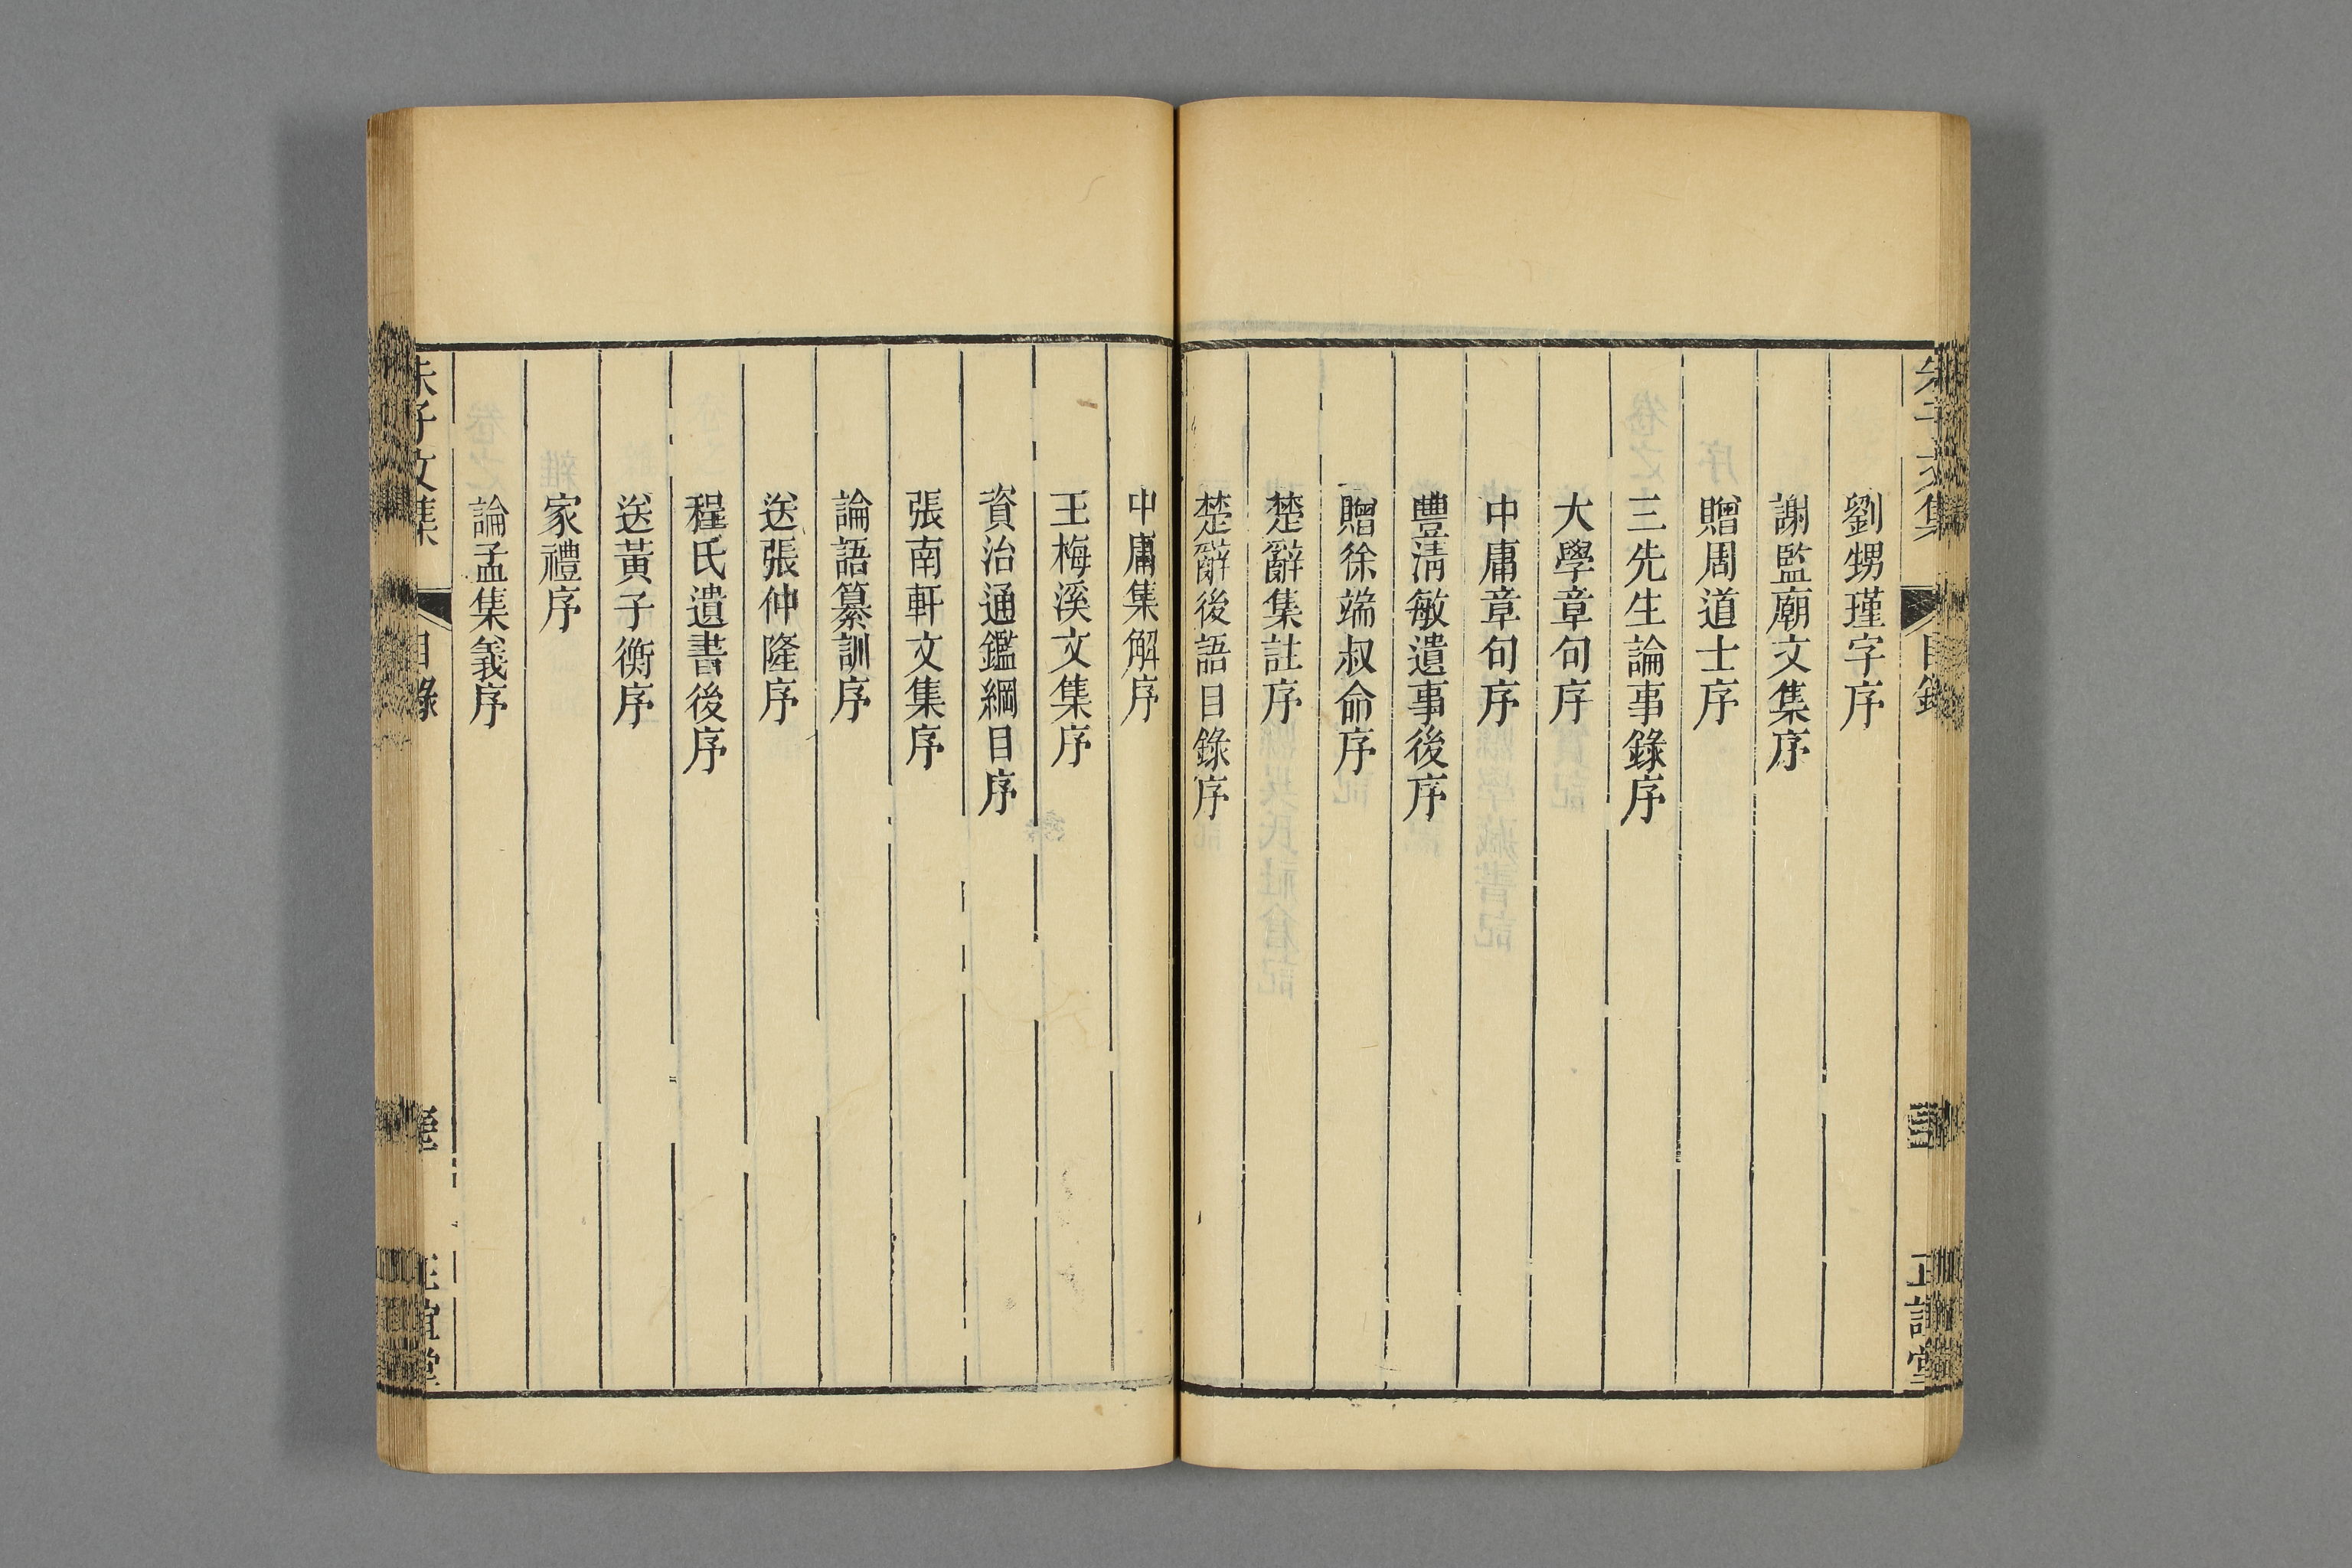 劉甥瑾字序
謝監廟文集序
贈周道士序
三先生論事錄序
大學章句序
中庸章句序
豐清敏遺事後序
贈徐端叔命序
楚辭集註序
楚辭後語目錄序
中庸集解序
王梅溪文集序
資治通鑑綱目序
張南軒文集序
論語纂訓序
送張仲隆序
程氏遺書後序
送黃子衡序
家禮序
論孟集義序
朱子文集 目錄